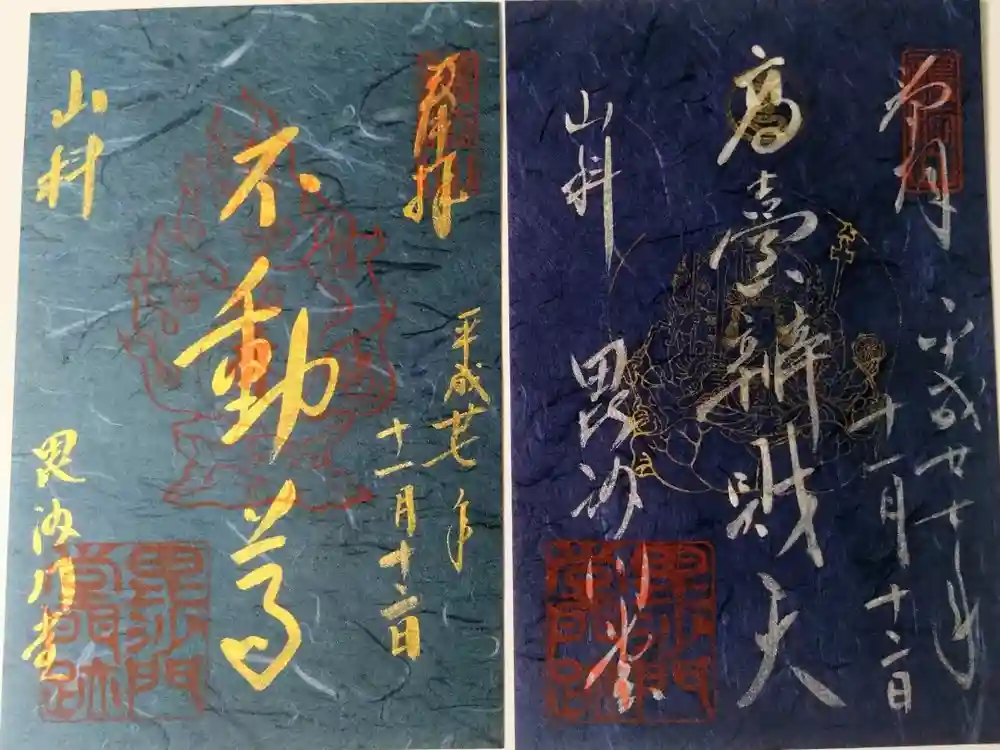 奉拝
平成廿七年
十一月十二日
不動尊
山科
毘沙門堂
毘沙門
堂門跡
奉拝
平成廿七年
十一月十二日
高臺辨財天
山科
毘沙門堂
毘沙門
堂門跡